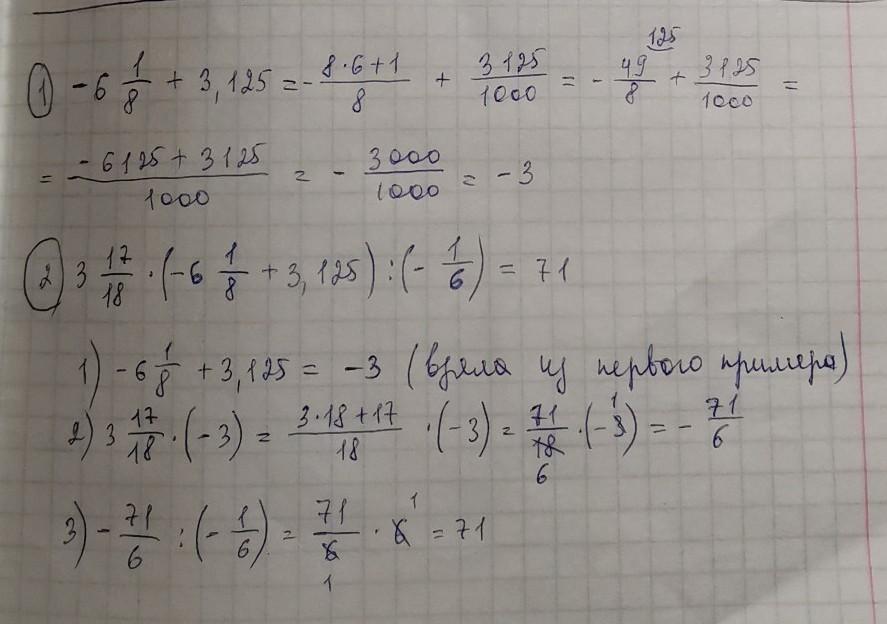 1) -6 1/8 + 3,125 = - (8·6+1)/8 + 3125/1000 = - 49/8 ^125 + 3125/1000 =
= (-6125 + 3125)/1000 = - 3000/1000 = -3
2) 3 17/18 · (-6 1/8 + 3,125) : (- 1/6) = 71
1) -6 1/8 + 3,125 = -3 (взяла из первого примера)
2) 3 17/18 · (-3) = (3·18+17)/18 · (-3) = 71/18 6 · (-3 1) = - 71/6
3) - 71/6 : (- 1/6) = 71/6 1 · 6 1 = 71